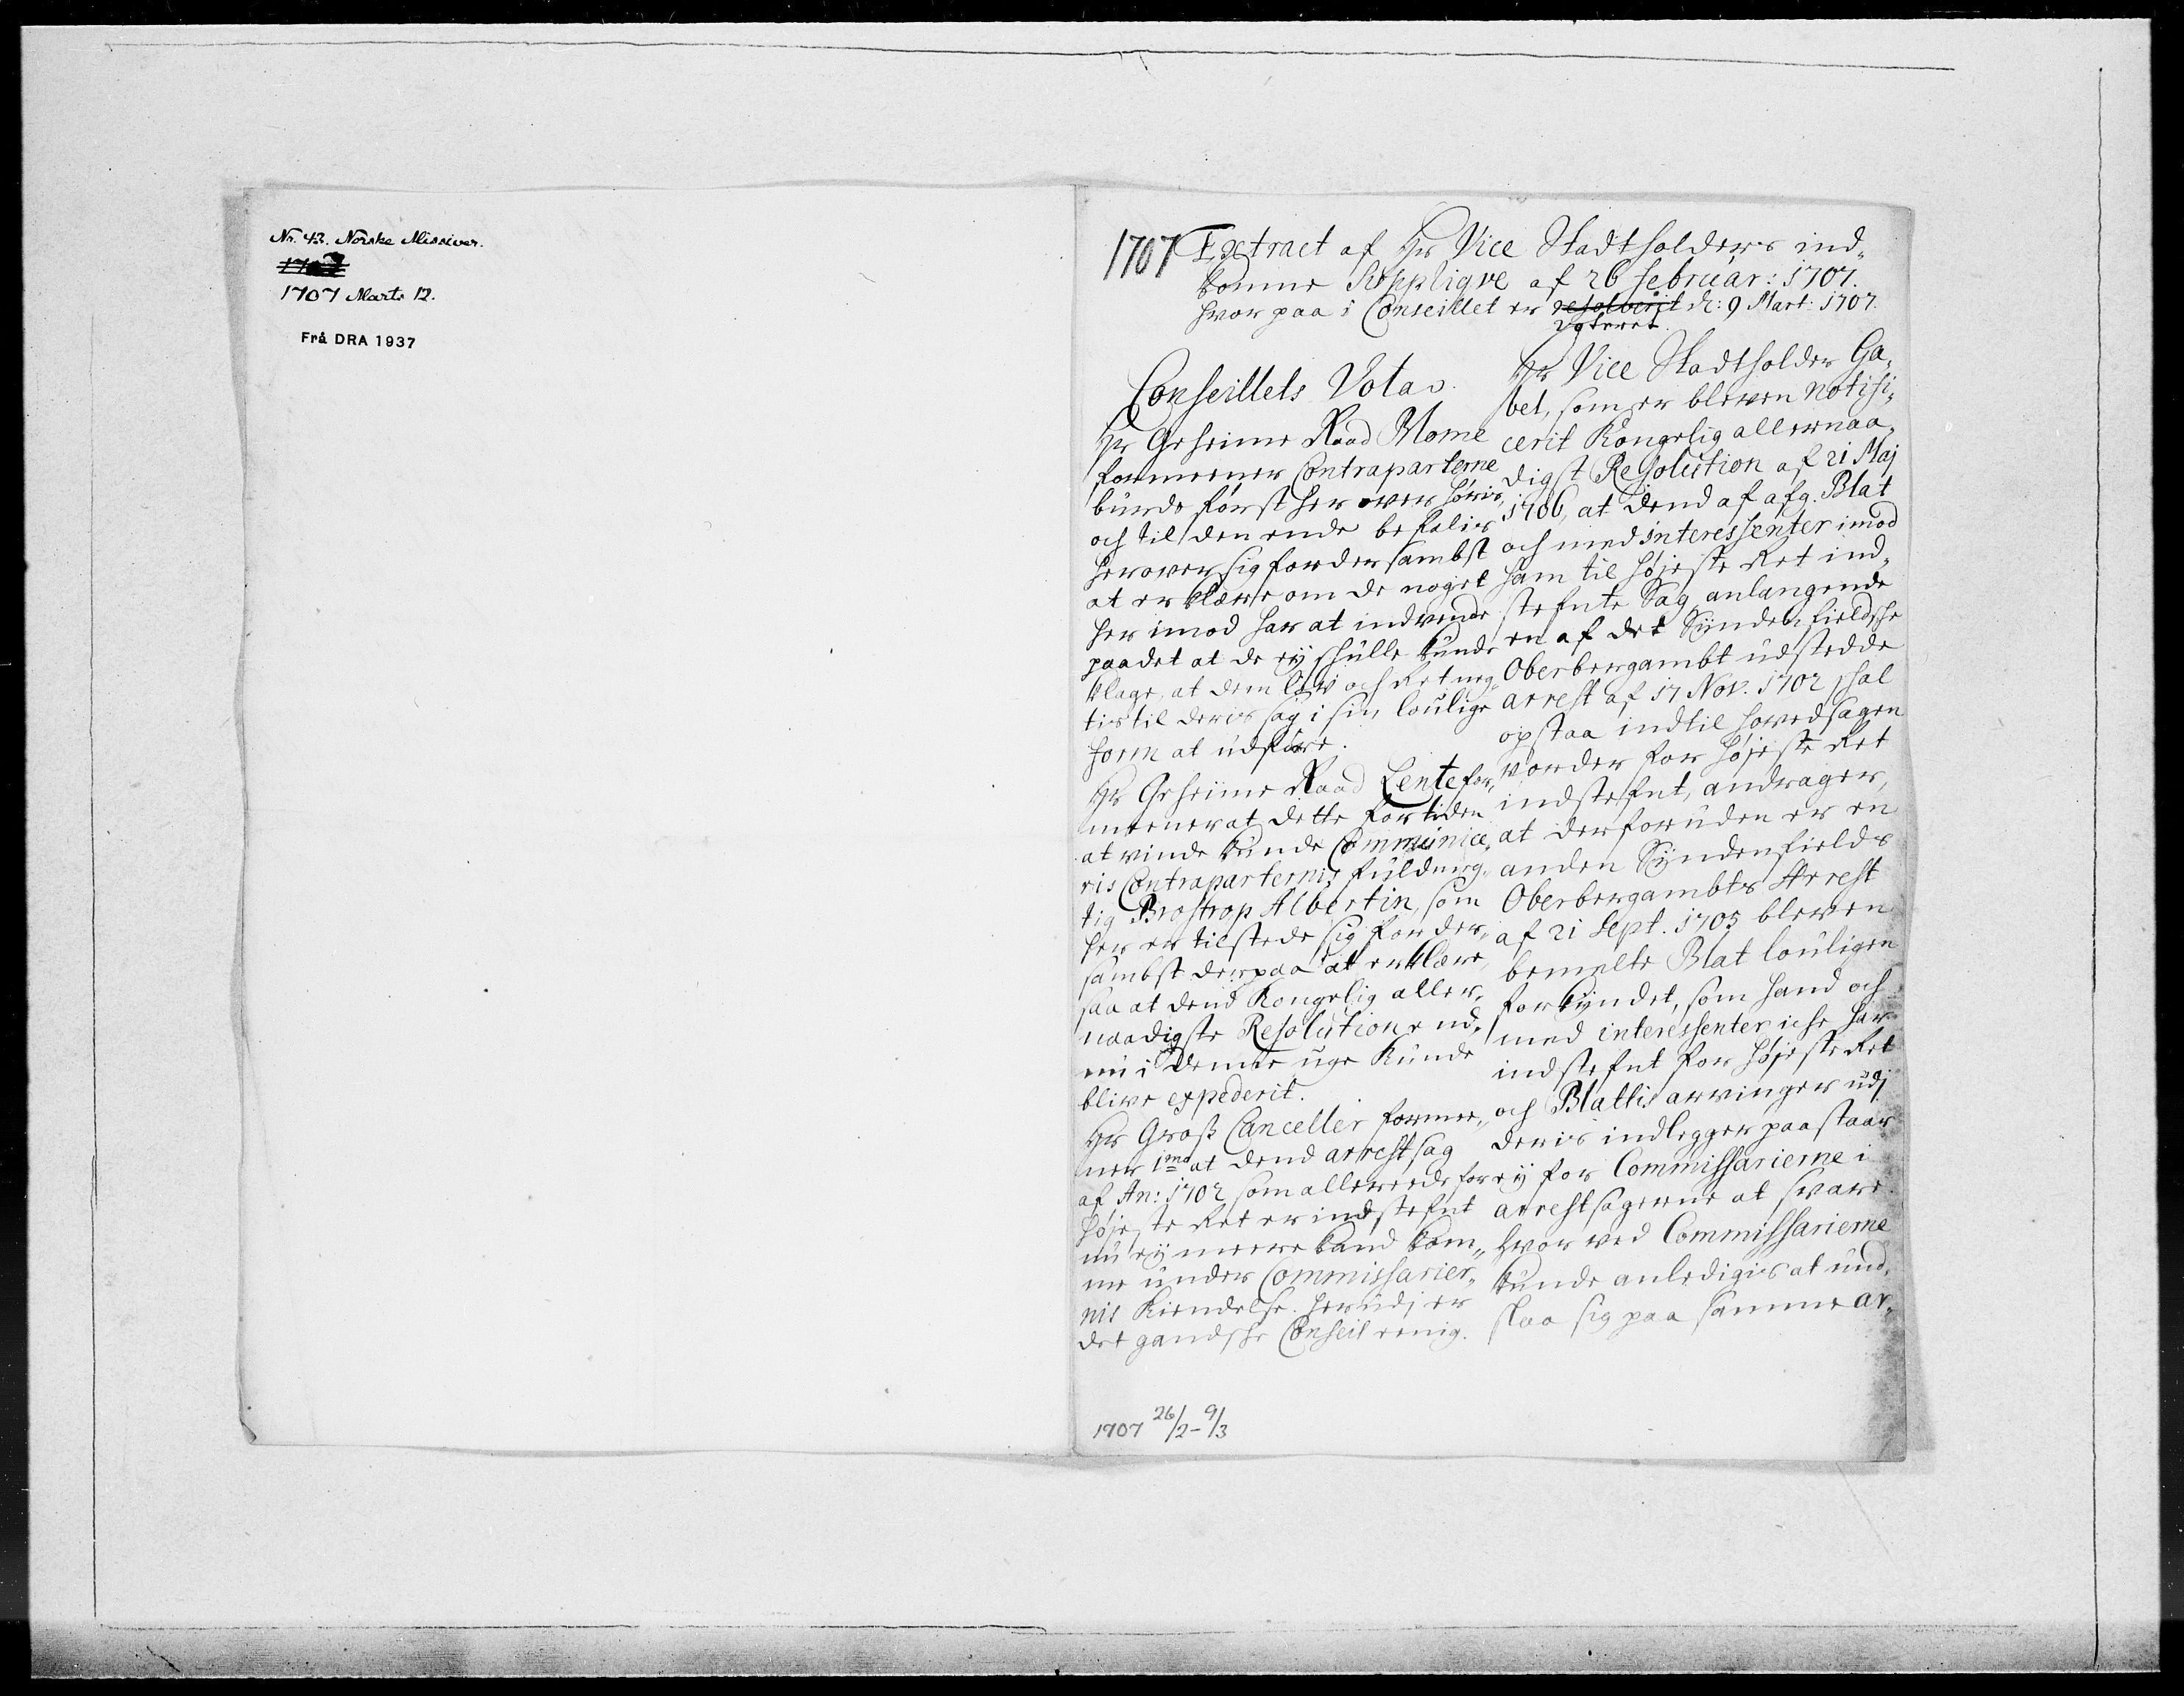 Nr. 43. Norske Missiver.
1707 Marts 12.
Frå DRA 1937
1707
Extract af Hr Vice Stadtholders ind„
komne Supplique af 26 februar: 1707.
hvor paa i Conseillet er resolverit d: 9 Mart: 1707.
voteret.
Conseillets Vota.
Hr Geheime Raad Mome
formeener Contraparterne
burde først her over høris,
och til den ende befalis
her over sig fordersambst
at erklære om de noget
her imod har at indvende
paa det at de ej skulle kunde
klage, at dem lov och Ret neg„
tis til deris sag i sin lovlige
form at udføre.
Hr Geheime Raad Lente for„
meener at dette for tiden
at vinde kunde Communice„
ris Contraparternis fuldmeg„
tig Brostrop Albertin, som
her er tilstede sig forder„
sambst derpaa at erklære,
saa at dend Kongelig aller„
naadigste Resolution end„
nu i denne uge kunde
blive expederit.
Hr Groß Canceller formee„
ner 1mo at dend arrest sag
af An: 1702 som allereede for
højeste Ret er indstefnt
nu ej meere kand kom„
me under Commissarier„
nis Kiendelse. herudj er
det gandske Conseil eenig.
Hr Vice Stadtholder Ga„
bel, som er bleven notifi„
cerit Kongelig allernaa„
digst Resolution af 21 Maj
1706, at dend af afg. Blat
och med interessenter imod
ham til højeste Ret ind„
stefnte Sag anlangende
en af det Syndenfieldske
Oberbergambt udstedde
arrest af 17 Nov. 1702 skal
opstaa indtil hovedsagen
vorder for højeste Ret
indstefnt, andrager,
at derforuden er en
anden Syndenfields
Oberbergambts Arrest
af 21 Sept. 1705 bleven
bemelte Blat louligen
forkyndet, som hand och
med interessenter icke har
indstefnt for højeste Ret
och Blattis arvinger udj
deris indlegger paastaar
ej for Commissarierne i
arrestsagerne at svare.
hvor ved Commissarierne
kunde anledigis at und„
slaa sig paa samme ar„
1707 26/2 - 9/3